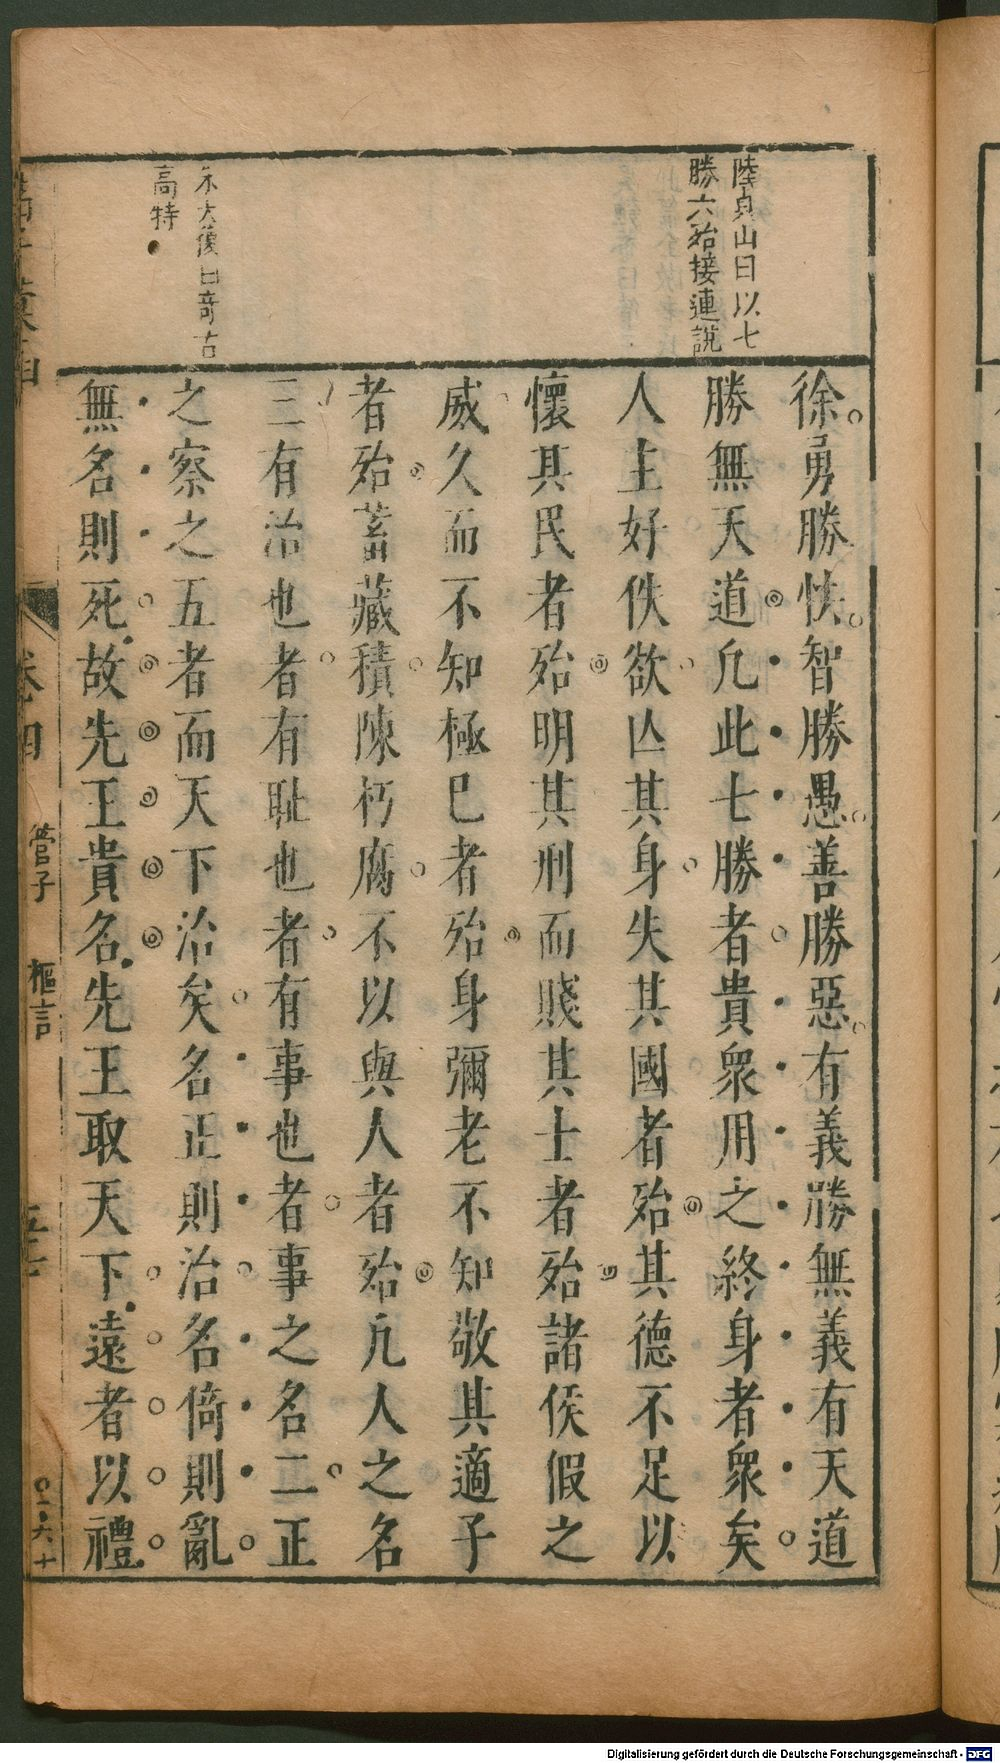 陸貞山曰以七
勝六殆接連說
朱大復曰奇古
高特
徐勇勝怯智勝愚善勝惡有義勝無義有天道
勝無天道凢此七勝者貴衆用之終身者衆矣
人主好佚欲亾其身失其國者殆其德不足以
懷其民者殆明其刑而賤其士者殆諸侯假之
威久而不知極已者殆身彌老不知敬其適子
者殆蓄藏積陳朽腐不以與人者殆凢人之名
三有治也者有耻也者有事也者事之名二正
之察之五者而天下治矣名正則治名倚則亂
無名則死故先王貴名先王取天下遠者以禮
卷四
管子
樞言
Digitalisierung gefördert durch die Deutsche Forschungsgemeinschaft - DFG